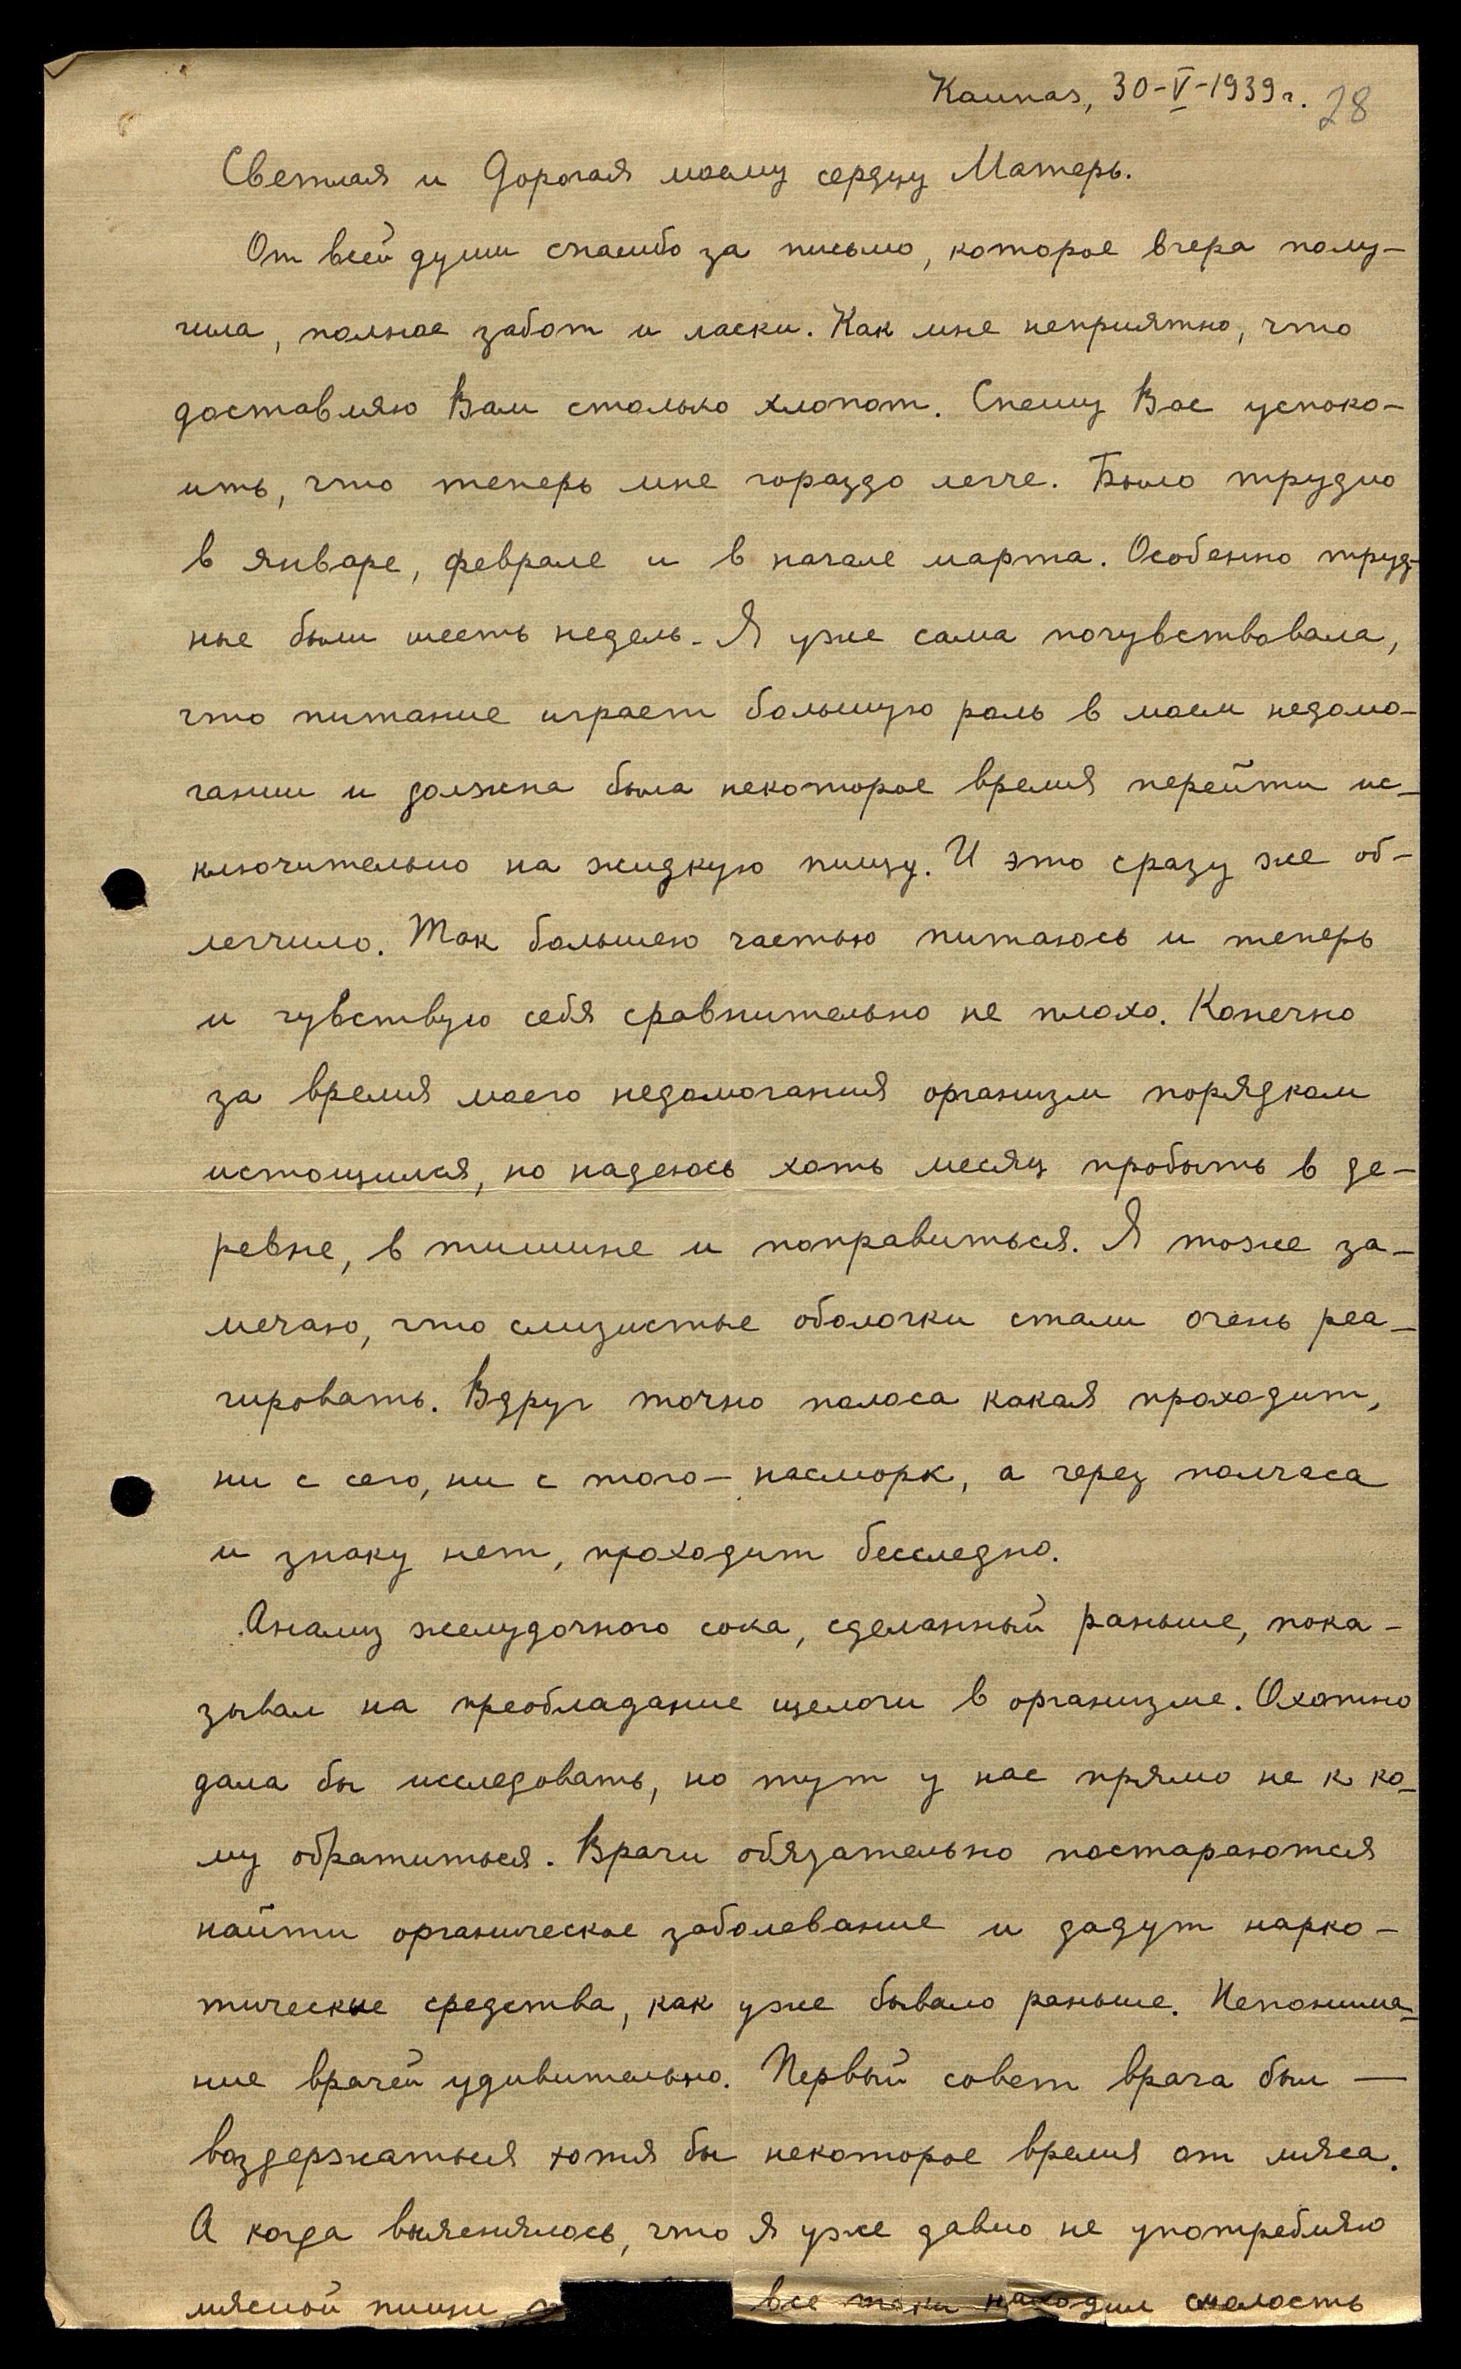 Каунас, 30-V-1939 г. 28
Светлая и Дорогая моему сердцу Матерь.
От всей души спасибо за письмо, которое вчера полу-
чила, полное забот и ласки. Как мне неприятно, что
доставляю Вам столько хлопот. Спешу Вас успоко-
ить, что теперь мне гораздо легче. Было трудно
в январе, феврале и в начале марта. Особенно труд-
ные были шесть недель. Я уже сама почувствовала,
что питание играет большую роль в моем недомо-
гании и должна была некоторое время перейти ис-
ключительно на жидкую пищу. И это сразу же об-
легчило. Так большею частью питаюсь и теперь
и чувствую себя сравнительно не плохо. Конечно
за время моего недомогания организм порядком
истощился, но надеюсь хоть месяц пробыть в де-
ревне, в тишине и поправиться. Я тоже за-
мечаю, что слизистые оболочки стали очень реа-
гировать. Вдруг точно полоса какая проходит,
ни с сего, ни с того – насморк, а через полчаса
и знаку нет, проходит бесследно.
Анализ желудочного сока, сделанный раньше, пока-
зывал на преобладание щелочи в организме. Охотно
дала бы исследовать, но тут у нас прямо не к ко-
му обратиться. Врачи обязательно постараются
найти органическое заболевание и дадут нарко-
тические средства, как уже бывало раньше. Непонима-
ние врачей удивительно. Первый совет врача был —
воздержаться хотя бы некоторое время от мяса.
А когда выяснялось, что я уже давно не употребляю
мясной пищи, все таки находил смелость